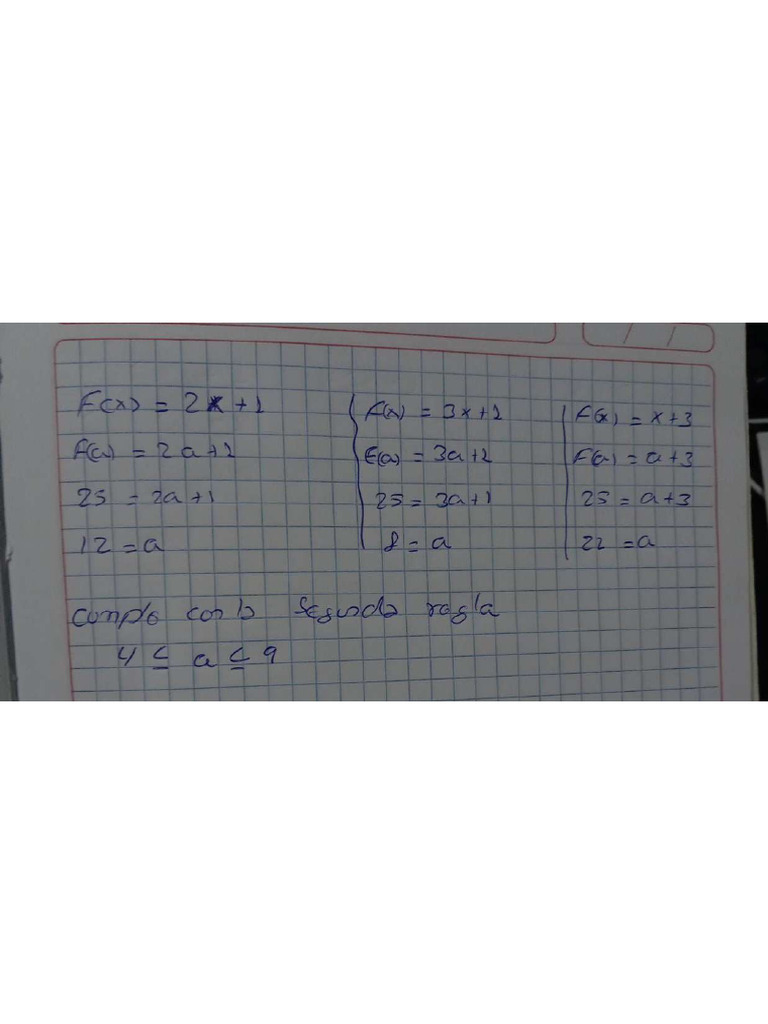 F(x) = 2x+1
F(a) = 2a+1
25 = 2a+1
12 = a
F(x) = 3x+1
F(a) = 3a+1
25 = 3a+1
8 = a
F(x) = x+3
F(a) = a+3
25 = a+3
22 = a
Cumple con la Segunda regla
4 ≤ a ≤ 9